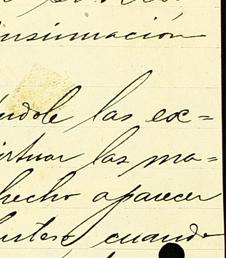 insinuación
ndole las ex=
irtuar las ma=
hecho aparecer
cuando